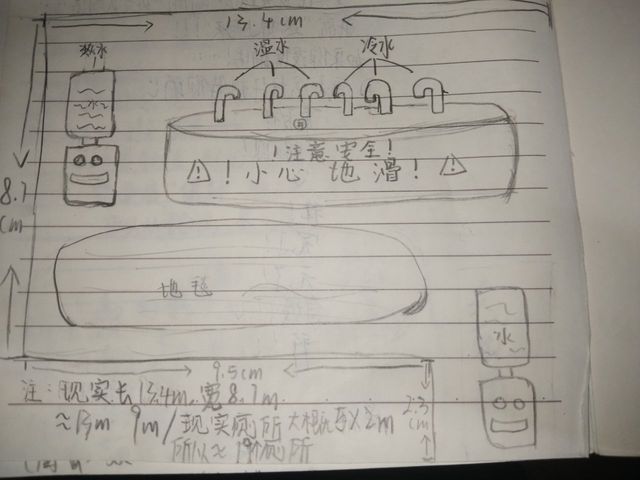 13.4cm
热水
温水
冷水
水
!注意安全!
! 小心地滑!
8.7
cm
地毯
水
9.5cm
2.3
cm
注:现实长13.4m,宽8.7m
≈13m 9m/现实厕所大概
所以≈19厕所